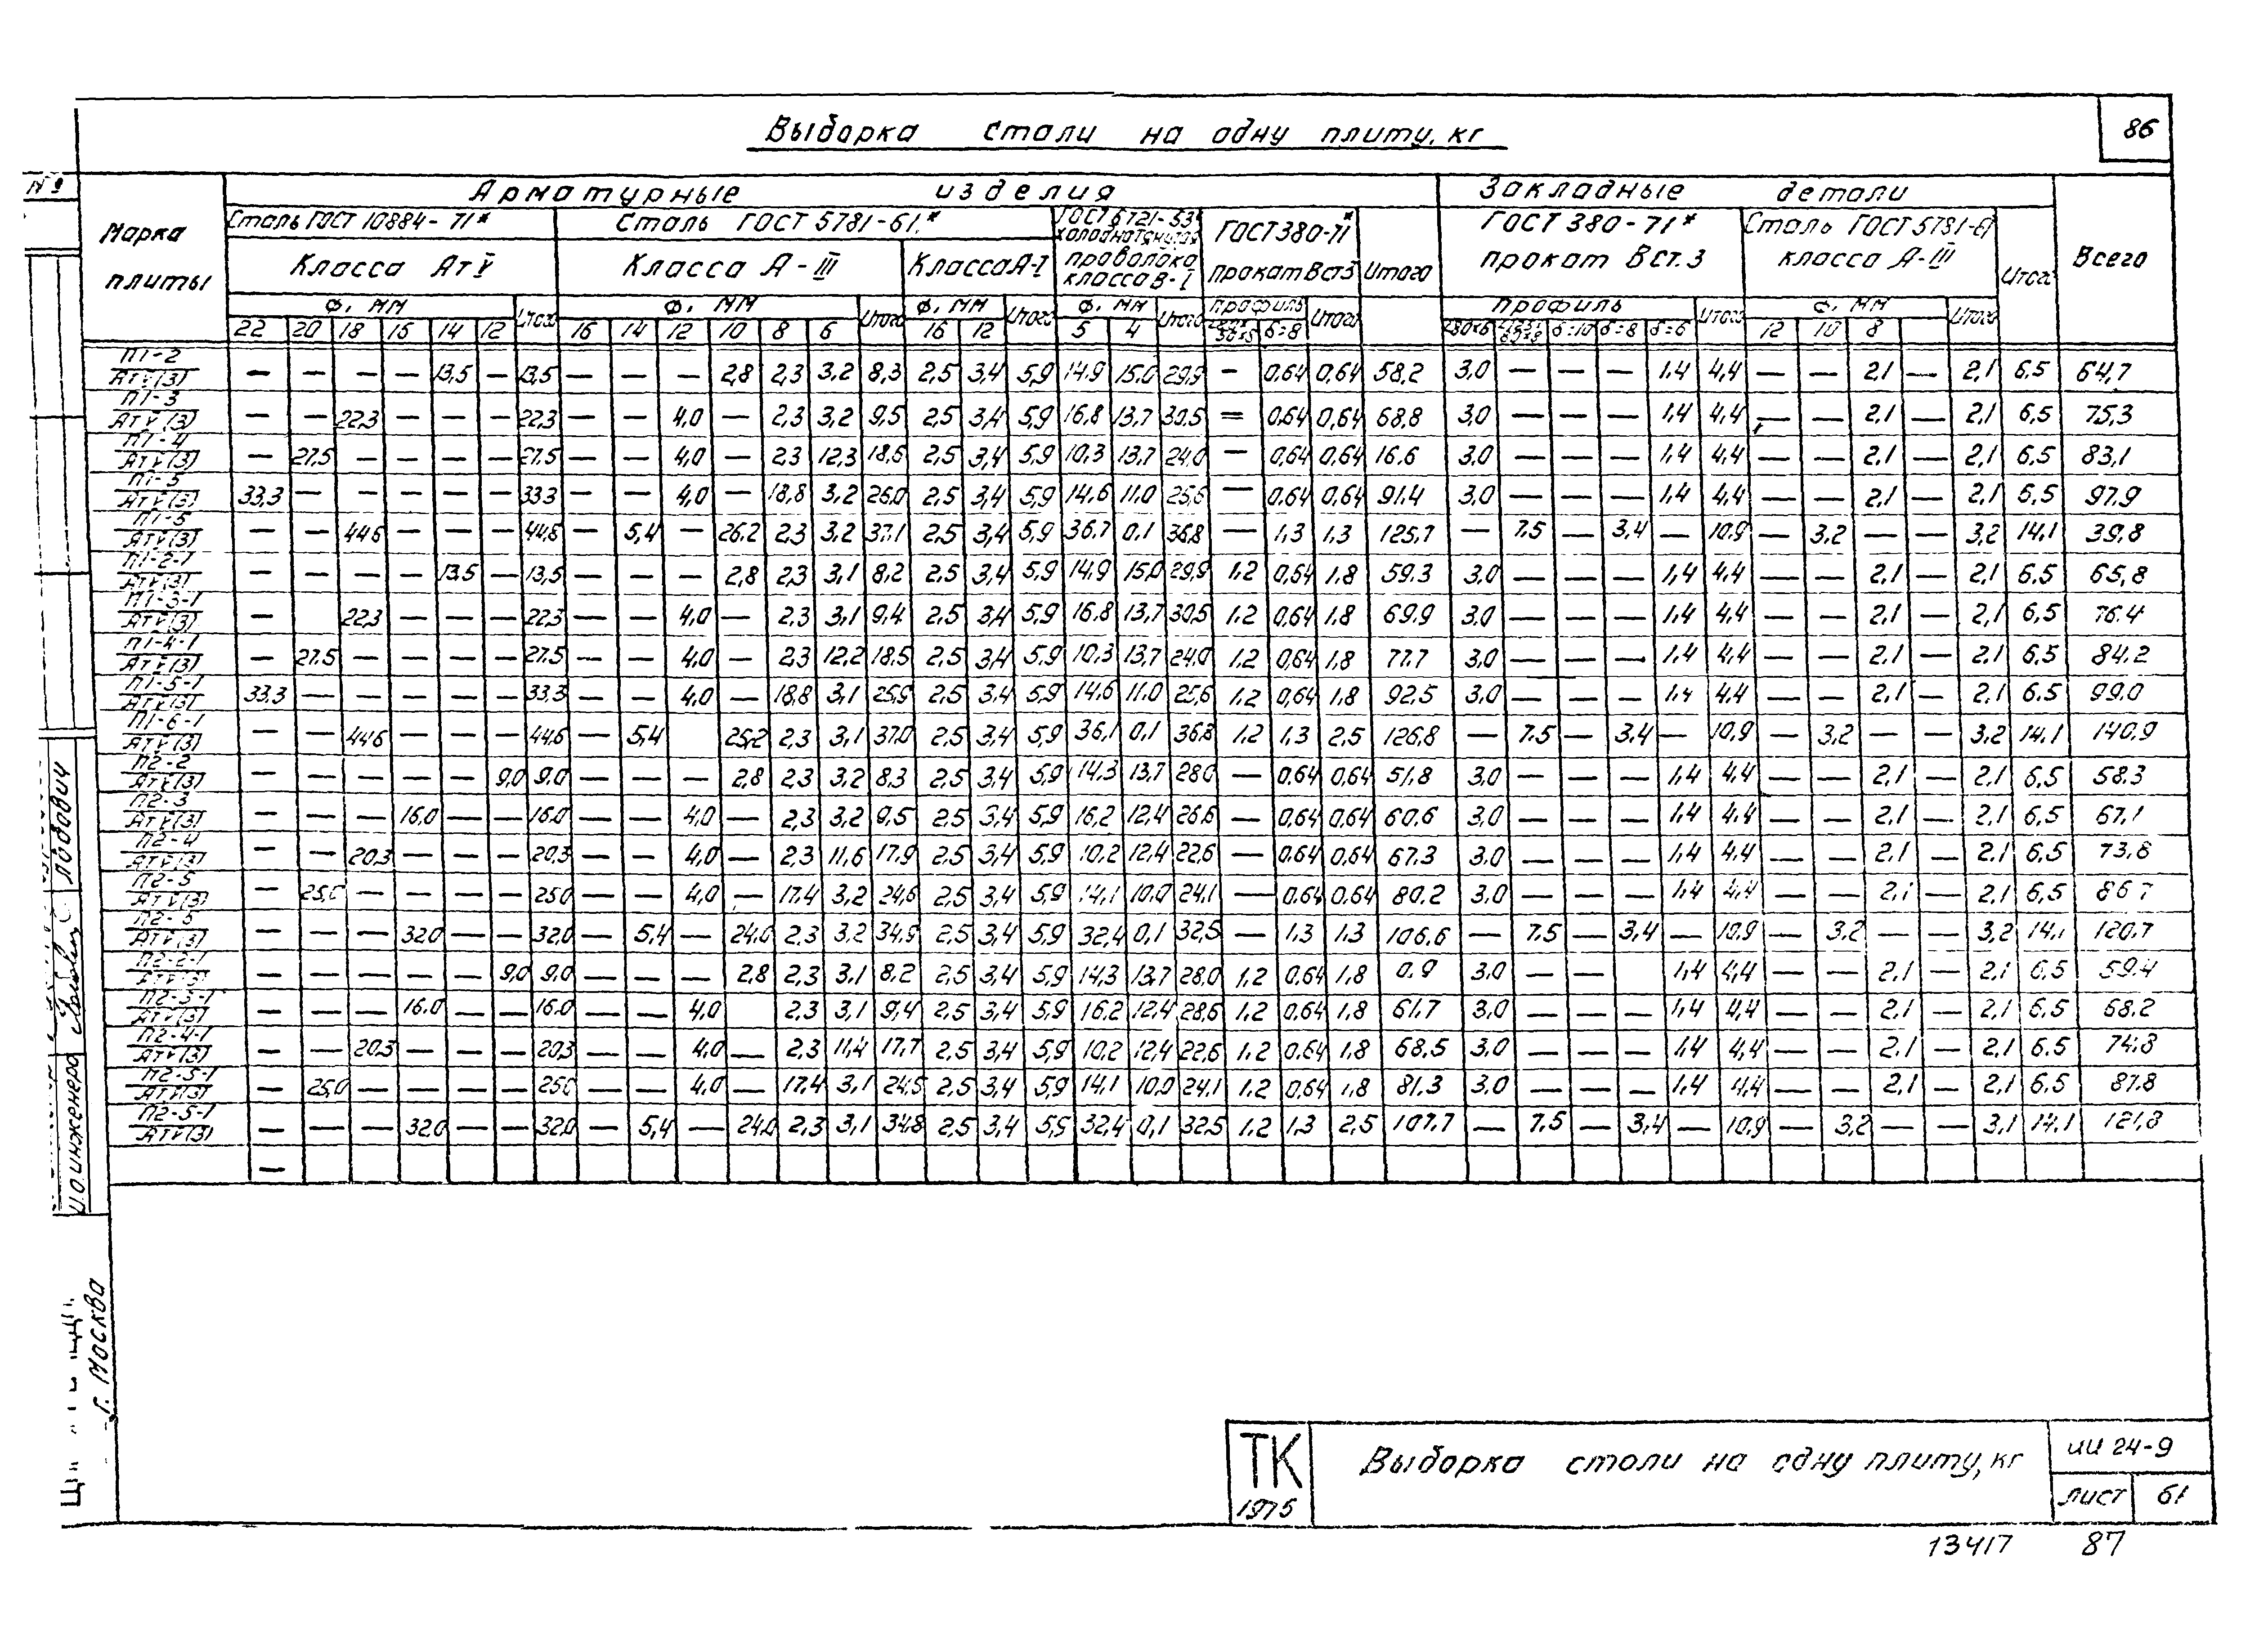 Выборка стали на одну плиту, кг
86
№
Марка плиты
Арматурные изделия
Закладные детали
Всего
Сталь ГОСТ 10884-71*
Сталь ГОСТ 5781-61*
ГОСТ 6721-53* холоднотянутая проволока класса В-I
ГОСТ 380-71* прокат Вст3
Итого
ГОСТ 380-71* прокат Вст.3
Сталь ГОСТ 5781-61 класса А-III
Итого
Класса Ат V
Класса А-III
Класса А-I
Ф, мм
Итого
Ф, мм
Итого
Ф, мм
Итого
Ф, мм
Итого
профиль
Итого
профиль
Итого
Ф, мм
Итого
22 20 18 15 14 12 16 14 12 10 8 6 16 12 5 4 б=8 б=10 б=8 б=6 12 10 8
П1-2 АтV(3) — — — — 13,5 — 13,5 — — — 2,8 2,3 3,2 8,3 2,5 3,4 5,9 14,9 15,0 29,9 — 0,64 0,64 58,2 3,0 — — — 1,4 4,4 — — 2,1 — 2,1 6,5 64,7
П1-3 АтV(3) — — 22,3 — — — 22,3 — — 4,0 — 2,3 3,2 9,5 2,5 3,4 5,9 16,8 13,7 30,5 — 0,64 0,64 68,8 3,0 — — — 1,4 4,4 — — 2,1 — 2,1 6,5 75,3
П1-4 АтV(3) — 27,5 — — — — 27,5 — — 4,0 — 2,3 12,3 18,6 2,5 3,4 5,9 10,3 13,7 24,0 — 0,64 0,64 16.6 3,0 — — — 1,4 4,4 — — 2,1 — 2,1 6,5 83,1
П1-5 АтV(3) 33,3 — — — — — 33,3 — — 4,0 — 18,8 3,2 26,0 2,5 3,4 5,9 14,6 11,0 25,6 — 0,64 0,64 91,4 3,0 — — — 1,4 4,4 — — 2,1 — 2,1 6,5 97,9
П1-5 АтV(3) — — 44,6 — — — 44,6 — 5,4 — 26,2 2,3 3,2 37,1 2,5 3,4 5,9 36,7 0,1 36,8 — 1,3 1,3 125,7 — 7,5 — 3,4 — 10,9 — 3,2 — — 3,2 14,1 39,8
П1-2-1 АтV(3) — — — — 13,5 — 13,5 — — — 2,8 2,3 3,1 8,2 2,5 3,4 5,9 14,9 15,0 29,9 1,2 0,64 1,8 59,3 3,0 — — — 1,4 4,4 — — 2,1 — 2,1 6,5 65,8
П1-3-1 АтV(3) — 22,3 — — — 22,3 — — 4,0 — 2,3 3,1 9,4 2,5 3,4 5,9 16,8 13,7 30,5 1,2 0,64 1,8 69,9 3,0 — — — 1,4 4,4 — — 2,1 — 2,1 6,5 76,4
П1-4-1 АтV(3) — 27,5 — — — — 27,5 — — 4,0 — 2,3 12,2 18,5 2,5 3,4 5,9 10,3 13,7 24,0 1,2 0,64 1,8 77,7 3,0 — — — 1,4 4,4 — — 2,1 — 2,1 6,5 84,2
П1-5-1 АтV(3) 33,3 — — — — — 33,3 — — 4,0 — 18,8 3,1 25,9 2,5 3,4 5,9 14,6 11,0 25,6 1,2 0,64 1,8 92,5 3,0 — — — 1,4 4,4 — — 2,1 — 2,1 6,5 99,0
П1-6-1 АтV(3) — — 44,6 — — — 44,6 — 5,4 25,2 2,3 3,1 37,0 2,5 3,4 5,9 36,1 0,1 36,8 1,2 1,3 2,5 126,8 — 7,5 — 3,4 — 10,9 — 3,2 — — 3,2 14,1 140,9
П2-2 АтV(3) — — — — — 9,0 9,0 — — — 2,8 2,3 3,2 8,3 2,5 3,4 5,9 14,3 13,7 28,0 — 0,64 0,64 51,8 3,0 — — — 1,4 4,4 — — 2,1 — 2,1 6,5 58,3
П2-3 АтV(3) — — — 16,0 — — 16,0 — — 4,0 — 2,3 3,2 9,5 2,5 3,4 5,9 16,2 12,4 26,6 — 0,64 0,64 60,6 3,0 — — — 1,4 4,4 — — 2,1 — 2,1 6,5 67,1
П2-4 АтV(3) — — 20,3 — — — 20,3 — — 4,0 — 2,3 11,6 17,9 2,5 3,4 5,9 10,2 12,4 22,6 — 0,64 0,64 67,3 3,0 — — — 1,4 4,4 — — 2,1 — 2,1 6,5 73,8
П2-5 АтV(3) — 25,0 — — — — 25,0 — — 4,0 — 17,4 3,2 24,6 2,5 3,4 5,9 14,1 10,0 24,1 — 0,64 0,64 80,2 3,0 — — — 1,4 4,4 — — 2,1 — 2,1 6,5 86 7
П2-5 АтV(3) — — — 32,0 — — 32,0 — 5,4 — 24,0 2,3 3,2 34,9 2,5 3,4 5,9 32,4 0,1 32,5 — 1,3 1,3 106,6 — 7,5 — 3,4 — 10,9 — 3,2 — — 3,2 14,1 120,7
П2-2-1 АтV(3) — — — — — 9,0 9,0 — — — 2,8 2,3 3,1 8,2 2,5 3,4 5,9 14,3 13,7 28,0 1,2 0,64 1,8 0,9 3,0 — — 1,4 4,4 — — 2,1 — 2,1 6,5 59,4
П2-3-1 АтV(3) — — — 16,0 — — 16,0 — — 4,0 2,3 3,1 9,4 2,5 3,4 5,9 16,2 12,4 28,6 1,2 0,64 1,8 61,7 3,0 — — — 1,4 4,4 — — 2,1 — 2,1 6,5 68,2
П2-4-1 АтV(3) — — 20,3 — — — 20,3 — — 4,0 — 2,3 11,4 17,7 2,5 3,4 5,9 10,2 12,4 22,6 1,2 0,64 1,8 68,5 3,0 — — — 1,4 4,4 — — 2,1 — 2,1 6,5 74,8
П2-5-1 АтV(3) — 25,0 — — — — 25,0 — — 4,0 — 17,4 3,1 24,5 2,5 3,4 5,9 14,1 10,0 24,1 1,2 0,64 1,8 81,3 3,0 — — — 1,4 4,4 — — 2,1 — 2,1 6,5 87,8
П2-5-1 АтV(3) — — — 32,0 — — 32,0 — 5,4 — 24,0 2,3 3,1 34,8 2,5 3,4 5,9 32,4 0,1 32,5 1,2 1,3 2,5 107,7 — 7,5 — 3,4 — 10,9 — 3,2 — — 3,1 14,1 121,8
—
И.О.инженера
Лобович
г. Москва
ТК
1975
Выборка стали на одну плиту, кг
ИИ 24-9
лист 61
13417 87